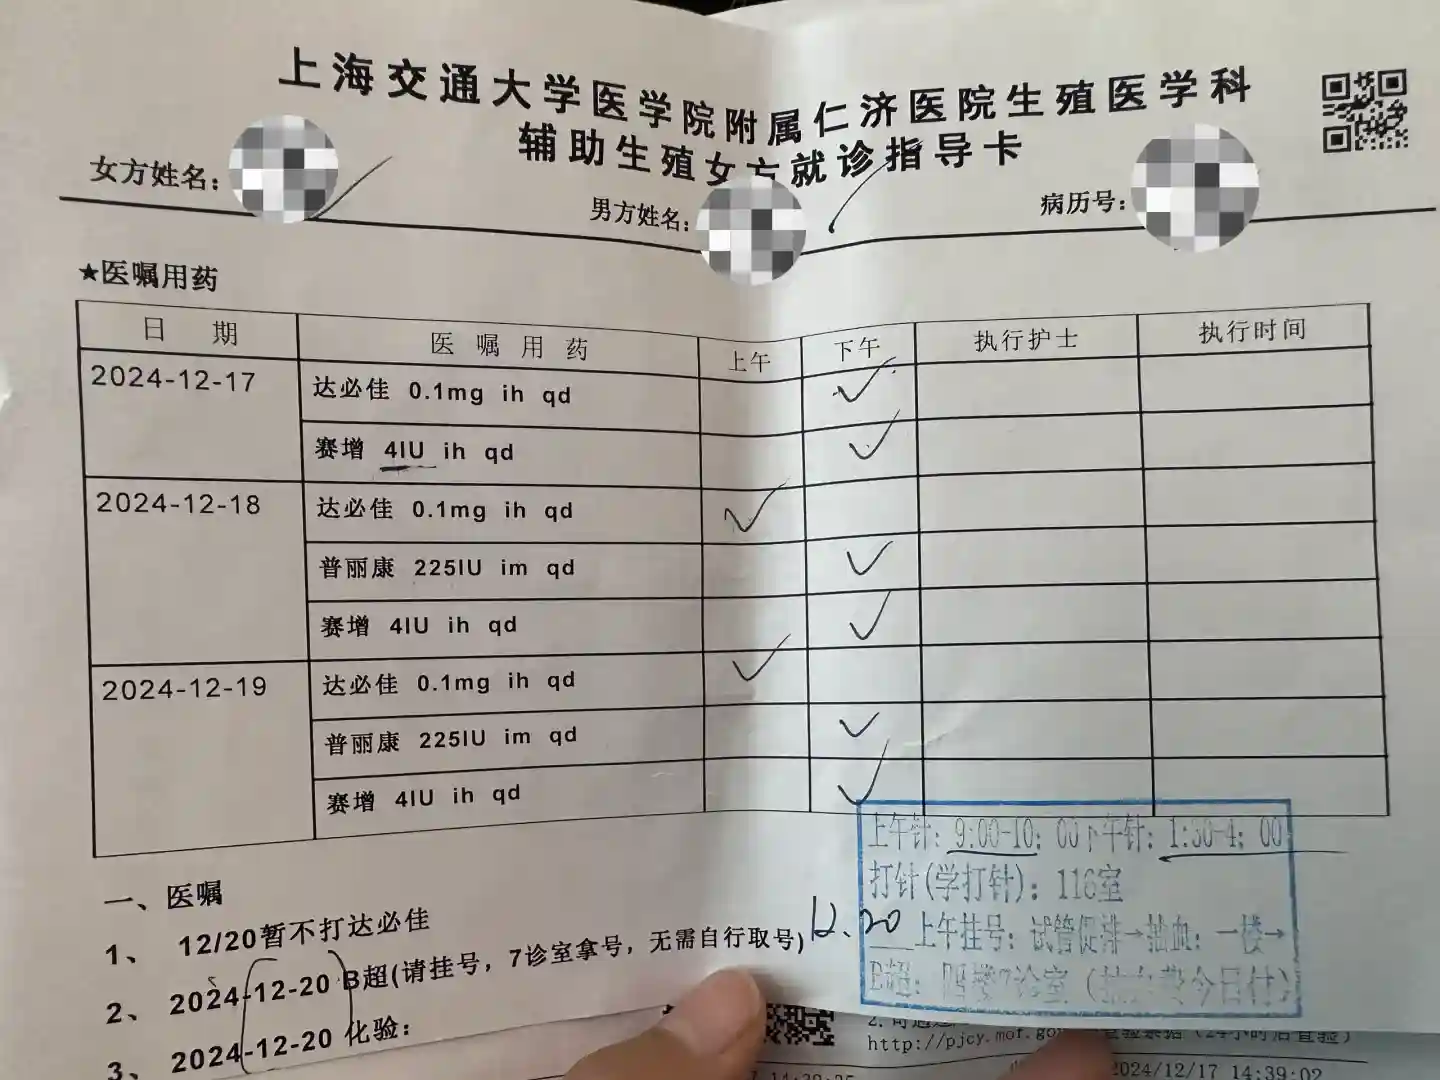 上海交通大学医学院附属仁济医院生殖医学科
辅助生殖女方就诊指导卡
女方姓名： 男方姓名： 病历号：
★医嘱用药
日 期 医 嘱 用 药 上午 下午 执行护士 执行时间
2024-12-17 达必佳 0.1mg ih qd ✓
赛增 4IU ih qd ✓
2024-12-18 达必佳 0.1mg ih qd ✓
普丽康 225IU im qd ✓
赛增 4IU ih qd ✓
2024-12-19 达必佳 0.1mg ih qd ✓
普丽康 225IU im qd ✓
赛增 4IU ih qd ✓
上午针：9:00-10：00下午针：1:30-4：00
打针(学打针)：116室
12.20 上午挂号：试管促排→抽血：一楼→
B超：四楼7诊室（费今日付）
一、医嘱
1、 12/20暂不打达必佳
2、 2024-12-20 B超(请挂号，7诊室拿号，无需自行取号)
3、 2024-12-20 化验：
2.
http://pjcy.mof.gov 票据（24小时后查验）
14:39:25
2024/12/17 14:39:02